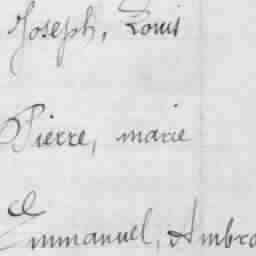 Joseph, Louis
Pierre, marie
Emmanuel, Ambro